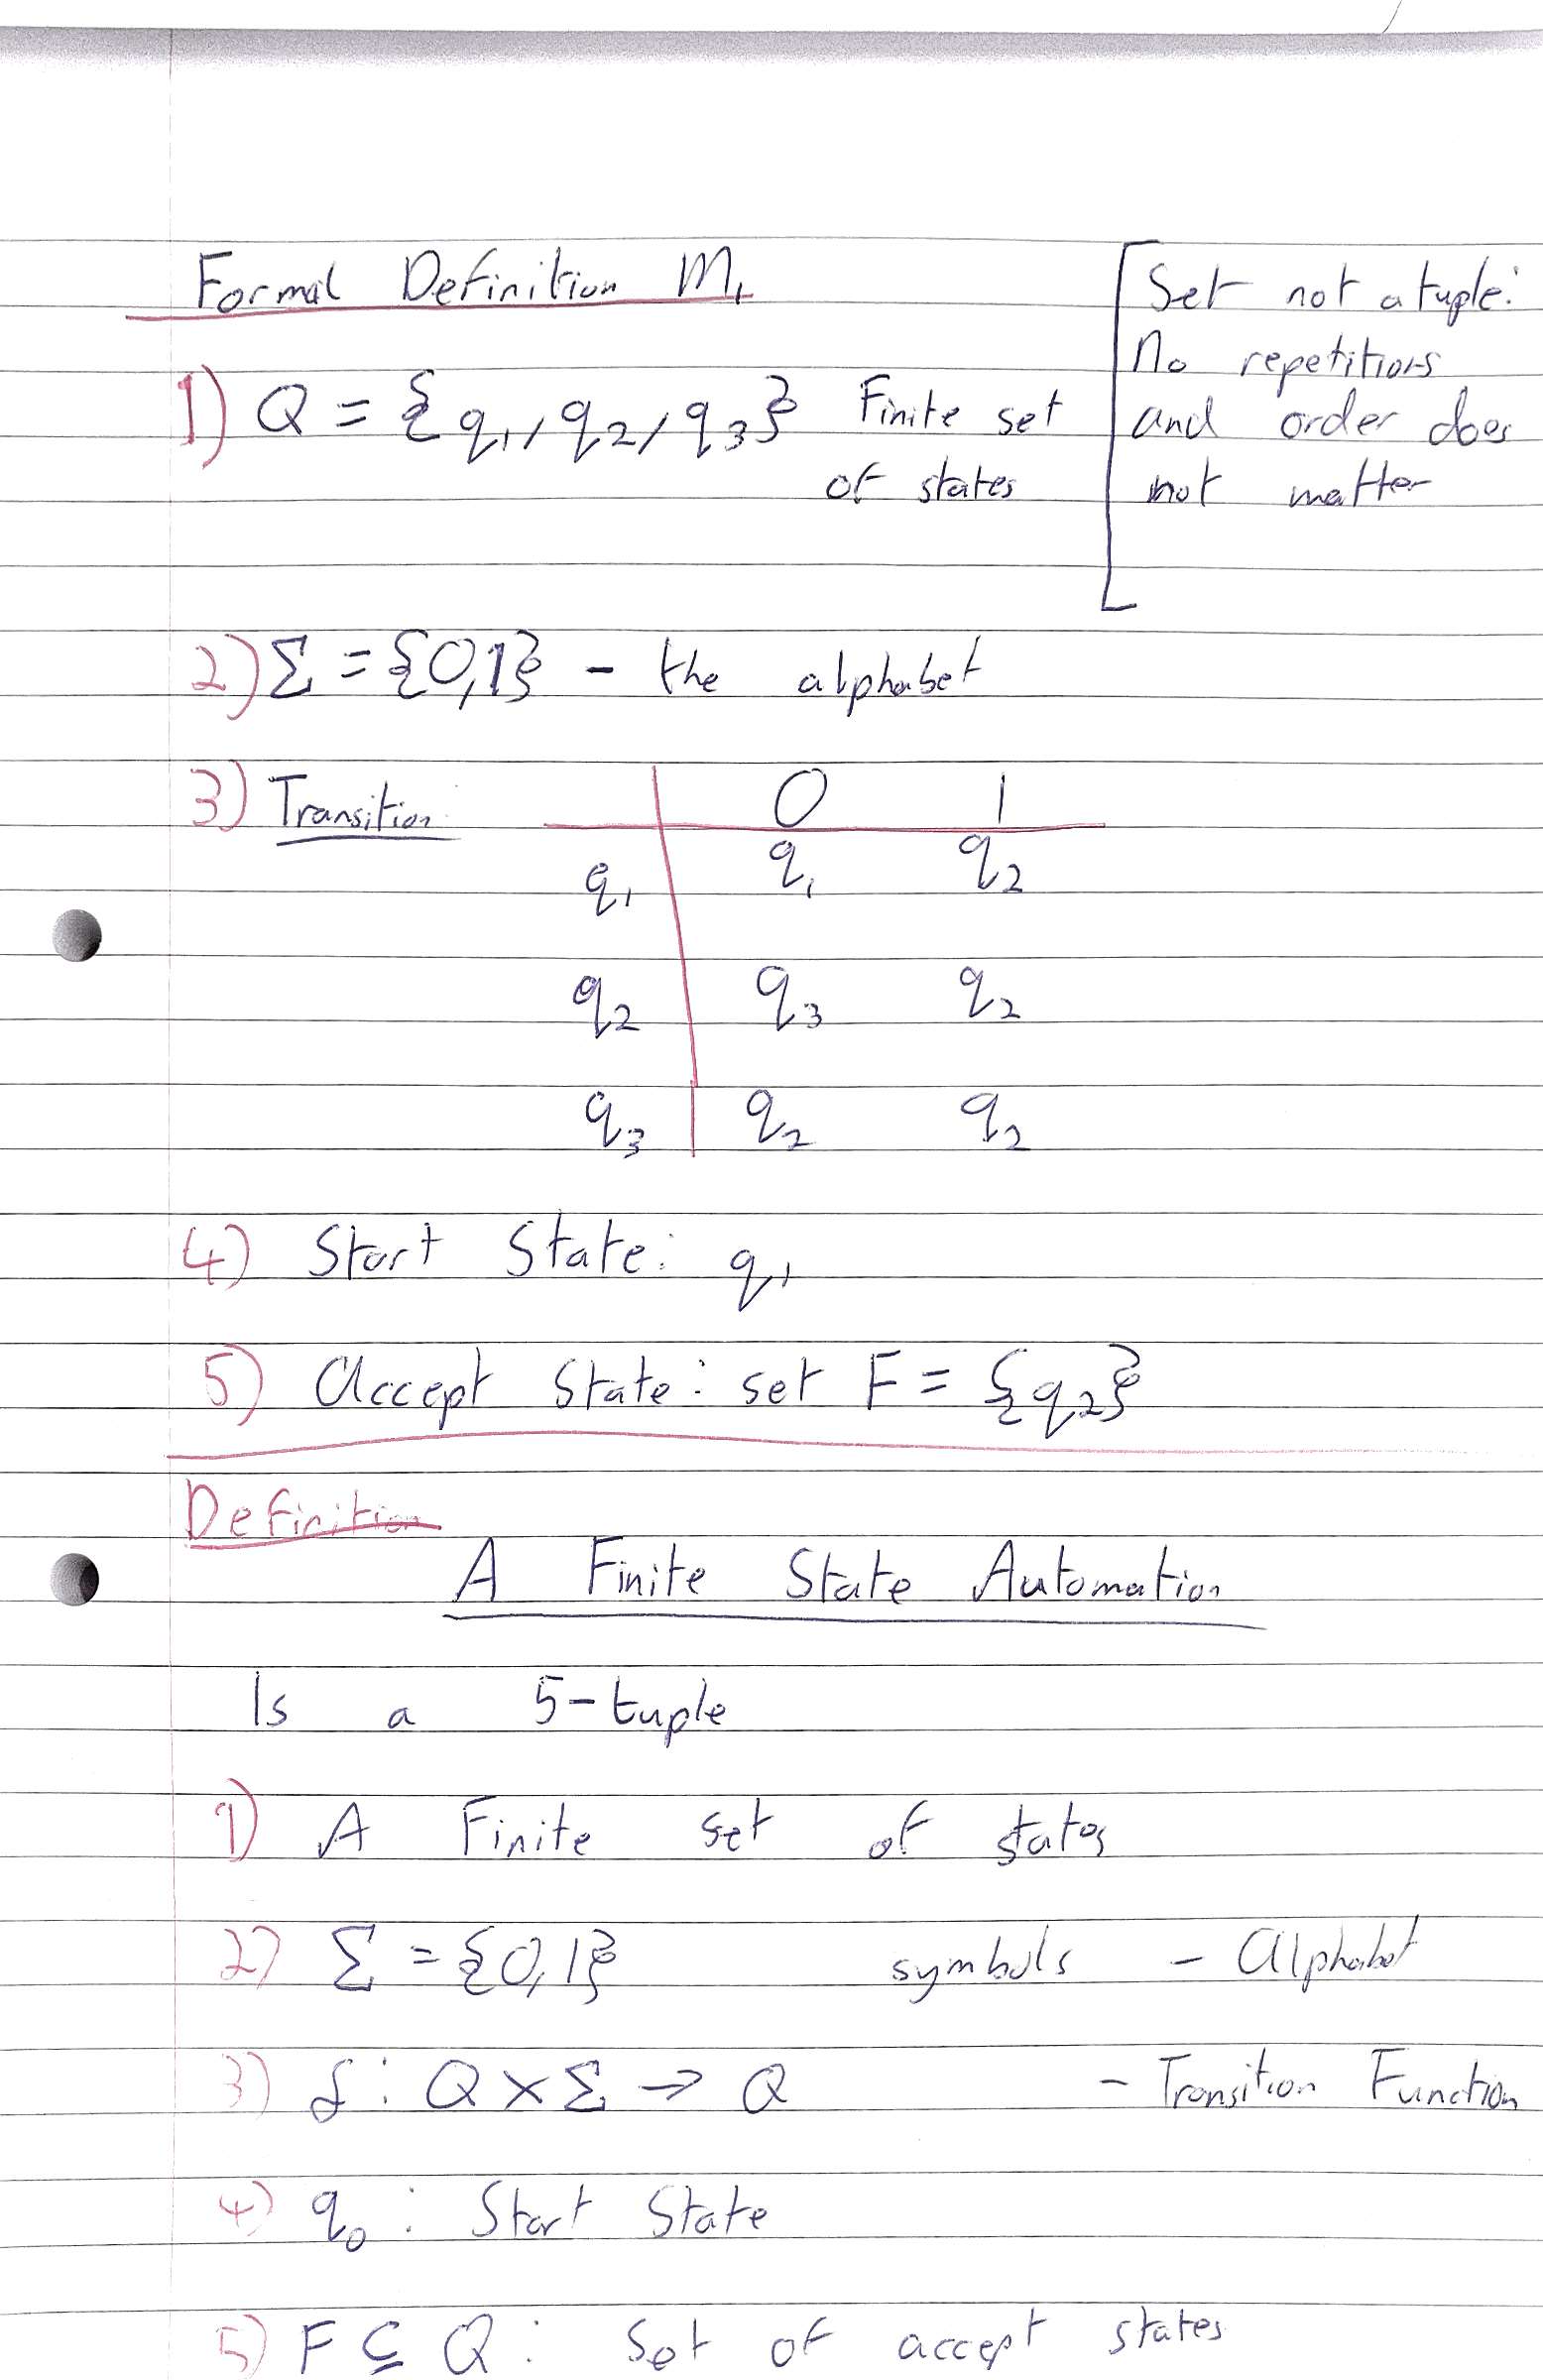 Formal Definition M₁
1) Q = {q₁, q₂, q₃} Finite set
of states
[Set not a tuple:
No repetitions
and order does
not matter
2) Σ = {0,1} - the alphabet
3) Transition 0 1
q₁ q₁ q₂
q₂ q₃ q₂
q₃ q₂ q₂
4) Start State: q₁
5) Accept State: set F = {q₂}
Definition
A Finite State Automation
Is a 5-tuple
1) A Finite set of states
2) Σ = {0,1} symbols - Alphabet
3) δ: Q × Σ → Q - Transition Function
4) q₀: Start State
5) F ⊆ Q: Set of accept states